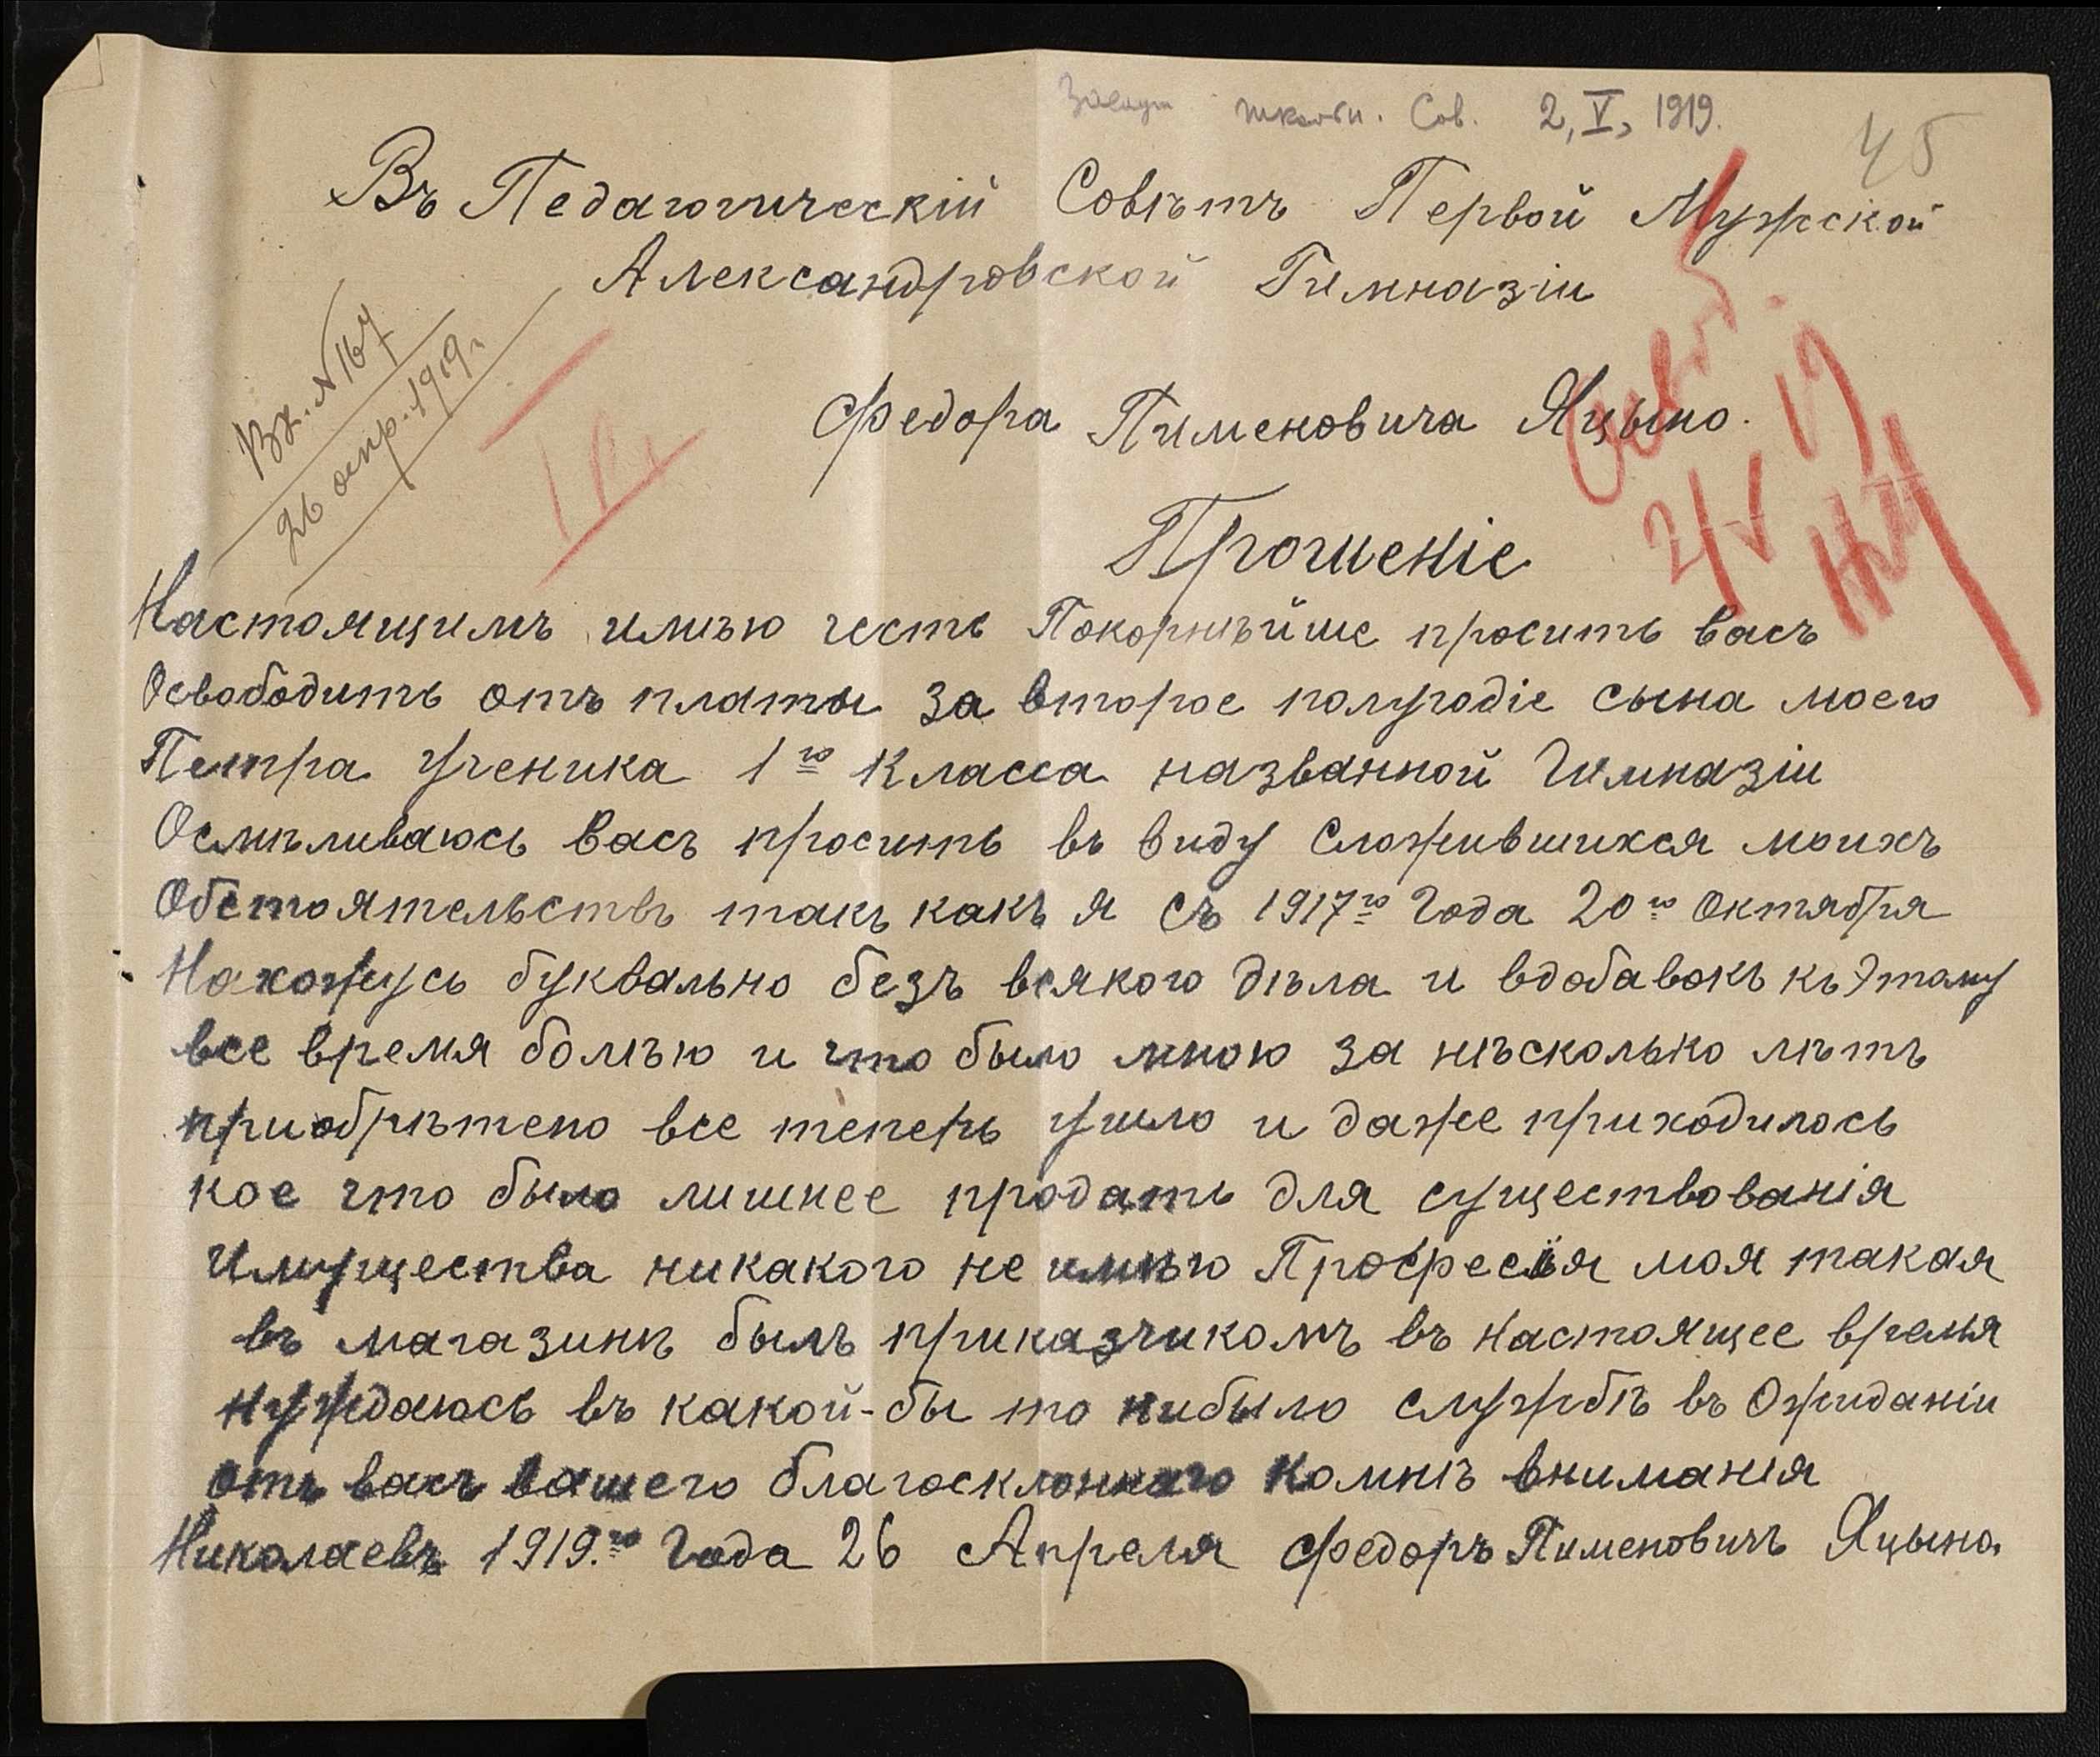 школьн. Сов. 2, V, 1919.
45
Въ Педагогическій Совѣтъ Первой Мужской
Александровской Гимназіи
Вх. № 167
26 апр. 1919 г.
Федора Пименовича Яцыно.
Прошеніе
Настоящимъ имѣю честь Покорнѣйше просить васъ
Освободить отъ платы за второе полугодіе сына моего
Петра Ученика 1го Класса названной Гимназіи
Осмѣливаюсь васъ просить въ виду Сложившихся моихъ
Обстоятельствъ такъ какъ я съ 1917го Года 20го Октября
Нахожусь буквально безъ всякого дѣла и вдобавокъ къ Этому
все время болѣю и что было мною за нѣсколько лѣтъ
приобрѣтено все теперь ушло и даже приходилось
кое что было лишнее продать для существованія
Имущества никакого не имѣю Професія моя такая
въ магазинѣ былъ приказчикомъ въ настоящее время
нуждаюсь въ какой-бы то нибыло службѣ въ Ожиданіи
отъ васъ вашего благосклоннаго комнѣ вниманія
Николаевъ 1919.го Года 26 Апреля Федоръ Пименовичъ Яцына.